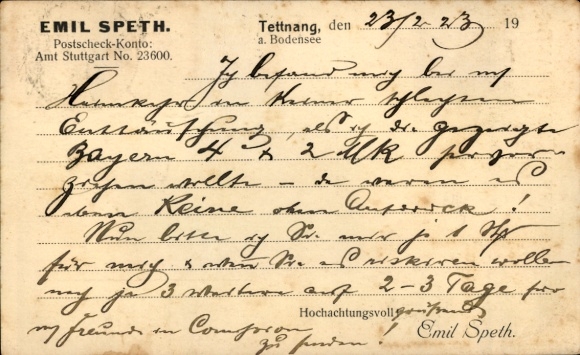 EMIL SPETH.
Postscheck-Konto:
Amt Stuttgart No. 23600.
Tettnang, den 23/2. 23 19
a. Bodensee
Ich befand mich bei m/
Heimkehr in keiner schlechten
Enttäuschung, als ich die gezeigte
Bayern 4 & 2 Mk
ziehen wollte – da waren es
eben Keine ohne Aufdruck!
Nun bitte ich Sie mir je 1 Stk
für mich & wenn Sie es riskieren wollen
noch je 3 weitere auf 2-3 Tage pro
Hochachtungsvoll grüssend
m/ Freunde in
zu senden!
Emil Speth.